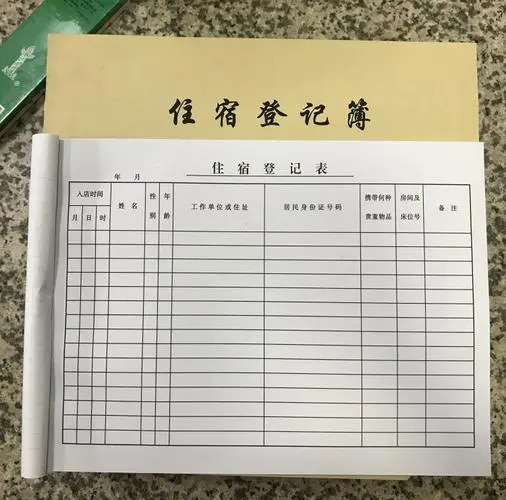 住宿登记簿
住宿登记表
年 月
入店时间 姓名 性别 年龄 工作单位或住址 居民身份证号码 携带何种贵重物品 房间及床位号 备注
月 日 时